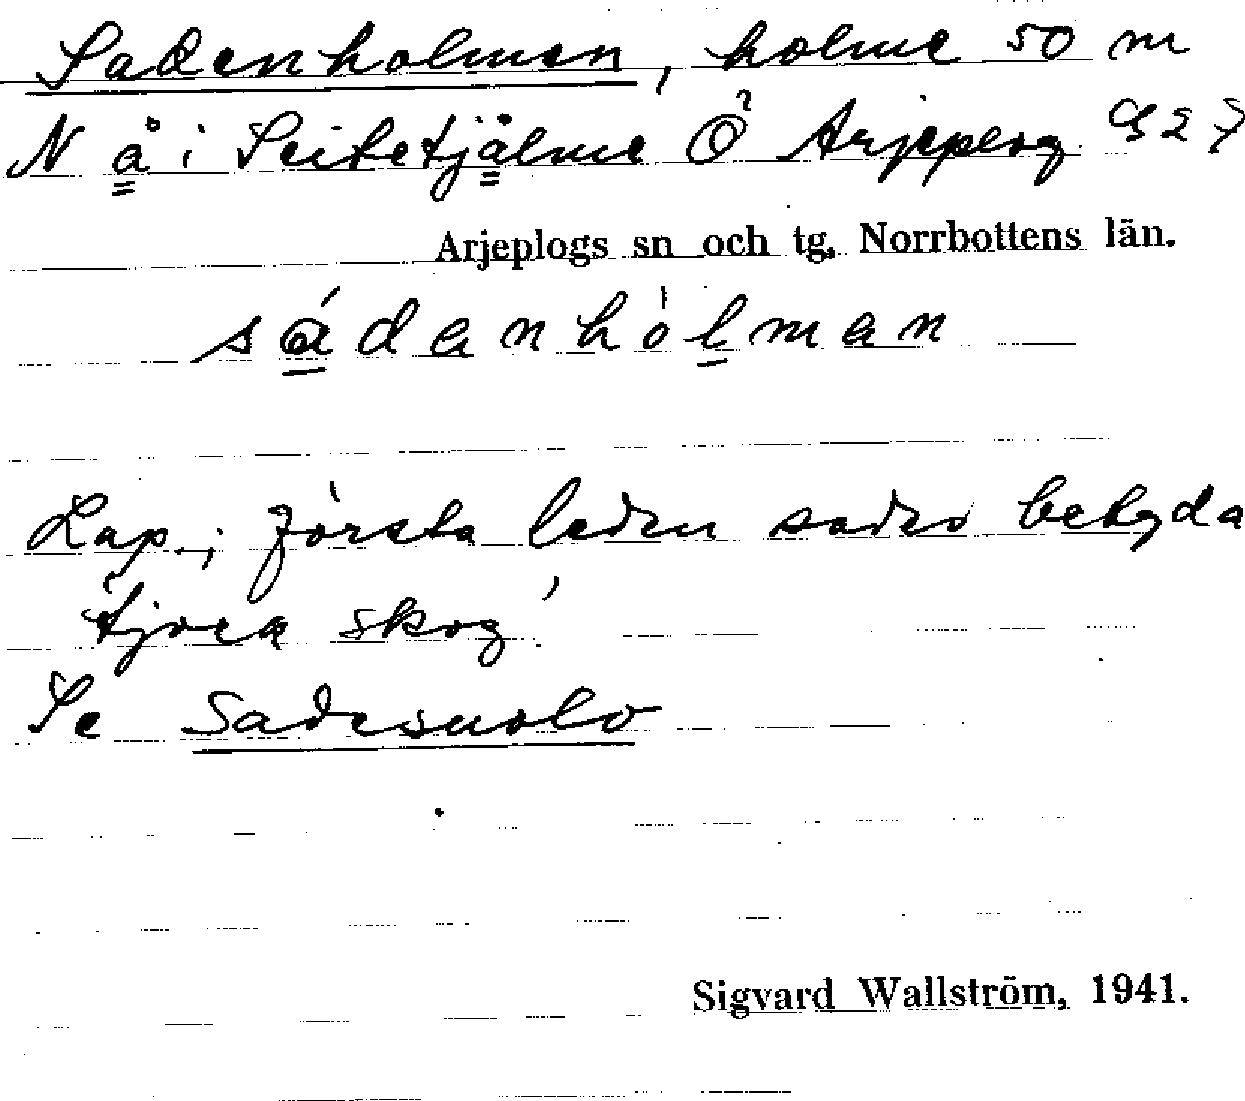 Sadenholmen, holme 50 m
N å i Seitetjålme Ö Arjeplog G 27
Arjeplogs sn och tg, Norrbottens län.
sádanhólman
Lap.; första leden sades betyda
'tjock skog'
Se Sadesuolo
Sigvard Wallström, 1941.